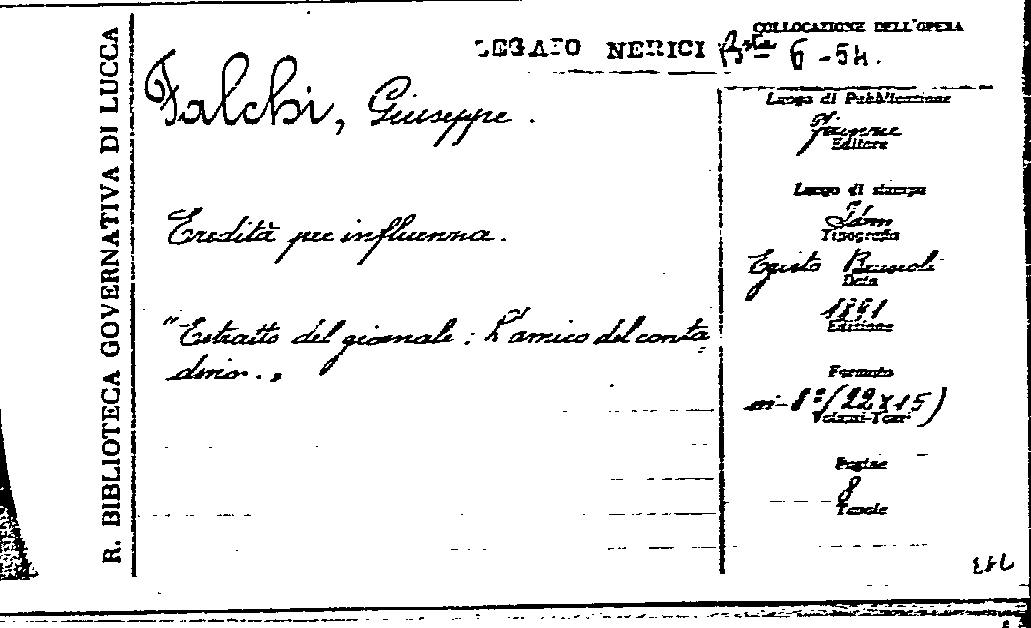 R. BIBLIOTECA GOVERNATIVA DI LUCCA
LEGATO NERICI
COLLOCAZIONE DELL'OPERA
B.sta 6 - 54.
Falchi, Giuseppe.
Eredità per influenna.
"Estratto del giornale: L'amico del conta=
dino."
Luogo di Pubblicazione
Firenze
Editore
Luogo di stampa
Idem
Tipografia
Egisto Bruscoli
Data
1891
Edizione
Formato
in-8°(22x15)
Volumi-Tomi
Pagine
8
Tavole